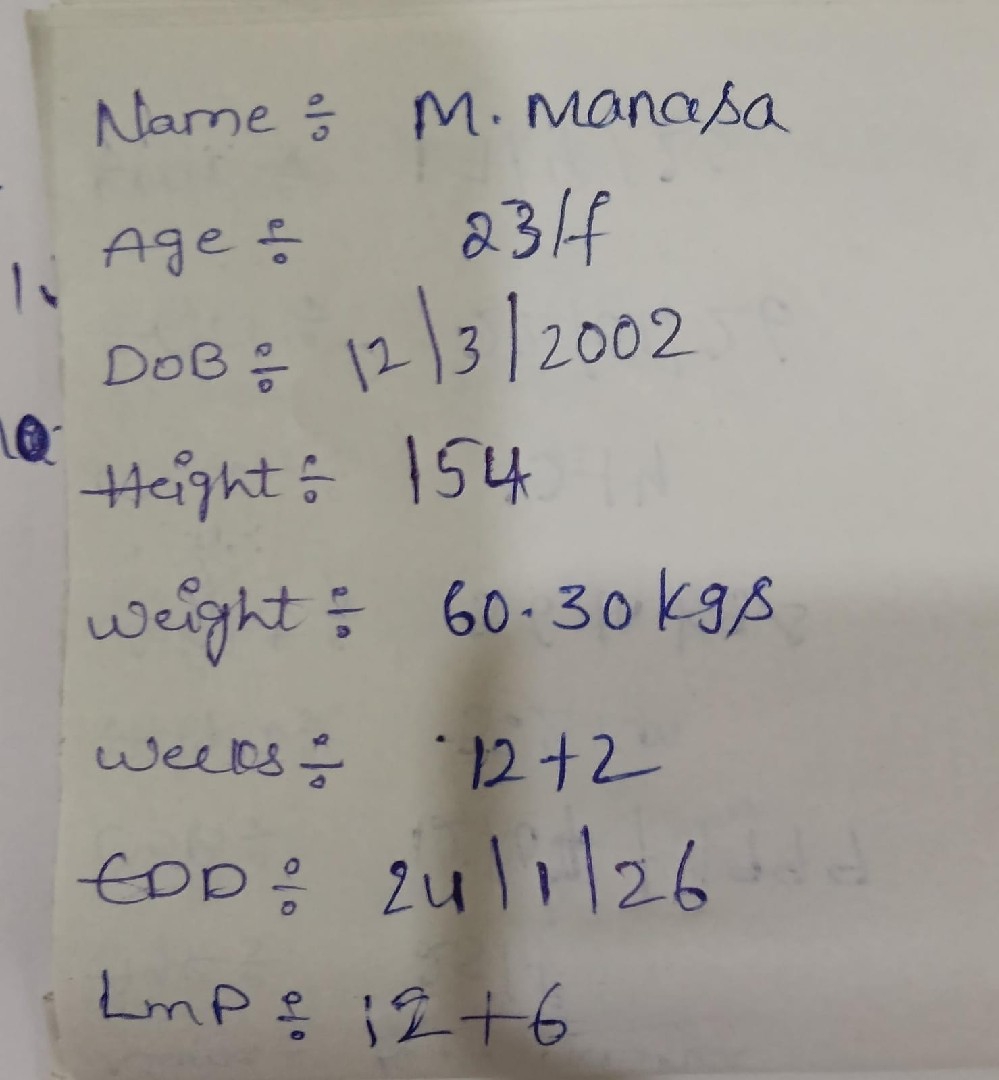 Name ÷ M. Manasa
Age ÷ 23/f
DOB ÷ 12/3/2002
Height ÷ 154
Weight ÷ 60.30 kgs
Weeks ÷ 12+2
EDD ÷ 24/1/26
LmP ÷ 12+6